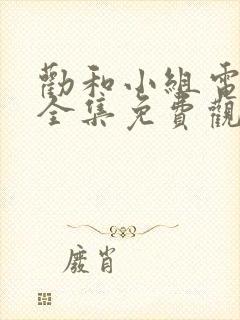 勸和小組電
全集免費觀
廢肖